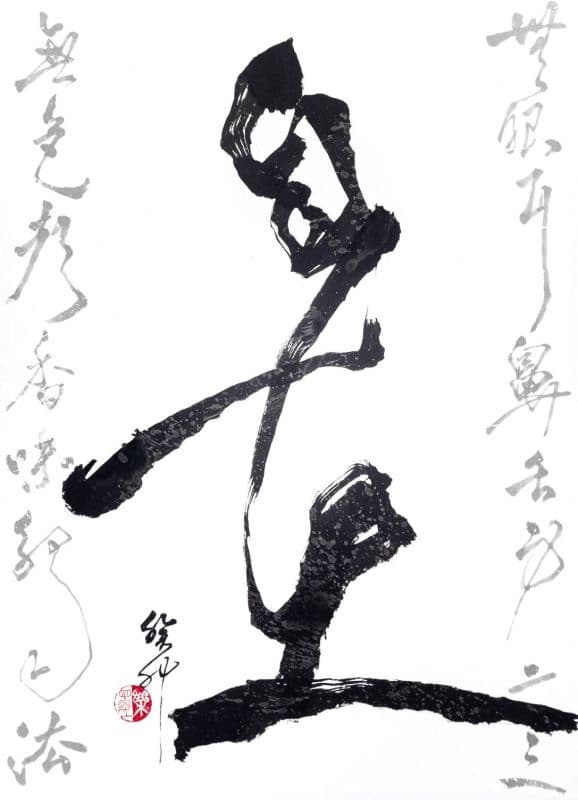 無眼耳鼻舌身意
無色聲香味觸法
癸卯